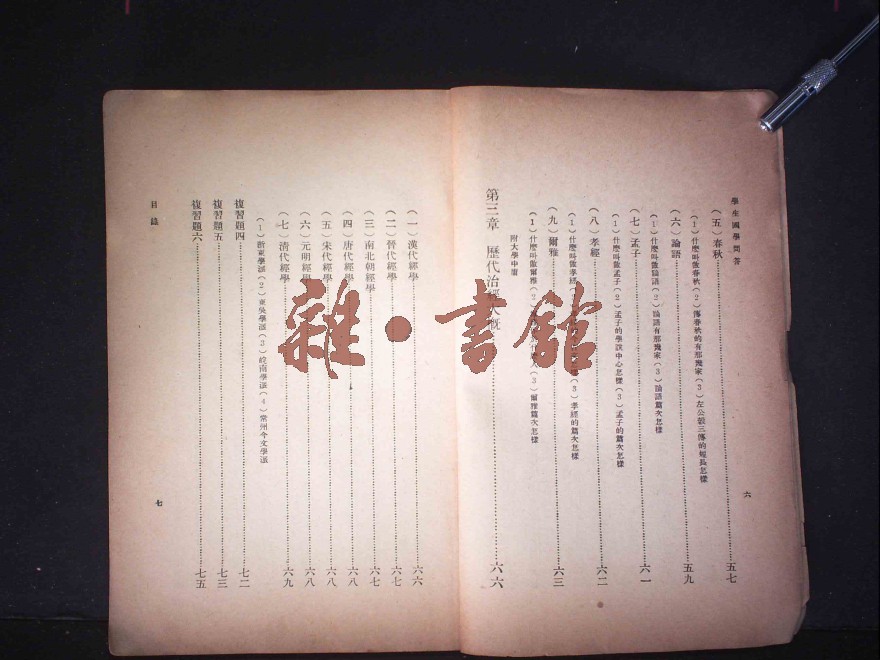 學生國學問答
六
（五）春秋……五七
（1）什麼叫做春秋（2）傳春秋的有那幾家（3）左公穀三傳的短長怎樣
（六）論語……五九
（1）什麼叫做論語（2）論語有那幾家（3）論語篇次怎樣
（七）孟子……六一
（1）什麼叫做孟子（2）孟子的學說中心怎樣（3）孟子的篇次怎樣
（八）孝經……六二
（1）什麼叫做孝經（3）孝經的篇次怎樣
（九）爾雅……六三
（1）什麼叫做爾雅（2）（3）爾雅篇次怎樣
附大學中庸
第三章　歷代治經大概……六六
（一）漢代經學……六六
（二）晉代經學……六七
（三）南北朝經學……六七
（四）唐代經學……六八
（五）宋代經學……六八
（六）元明經學……六八
（七）清代經學……六九
（1）浙東學派（2）東吳學派（3）皖南學派（4）常州今文學派
複習題四……七二
複習題五……七三
複習題六……七五
目錄
七
雜·書館